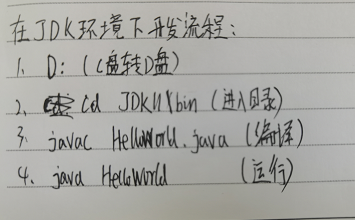 在JDK环境下开发流程:
1. D: (C盘转D盘)
2. cd JDK11\bin (进入目录)
3. javac HelloWorld.java (编译)
4. java HelloWorld (运行)